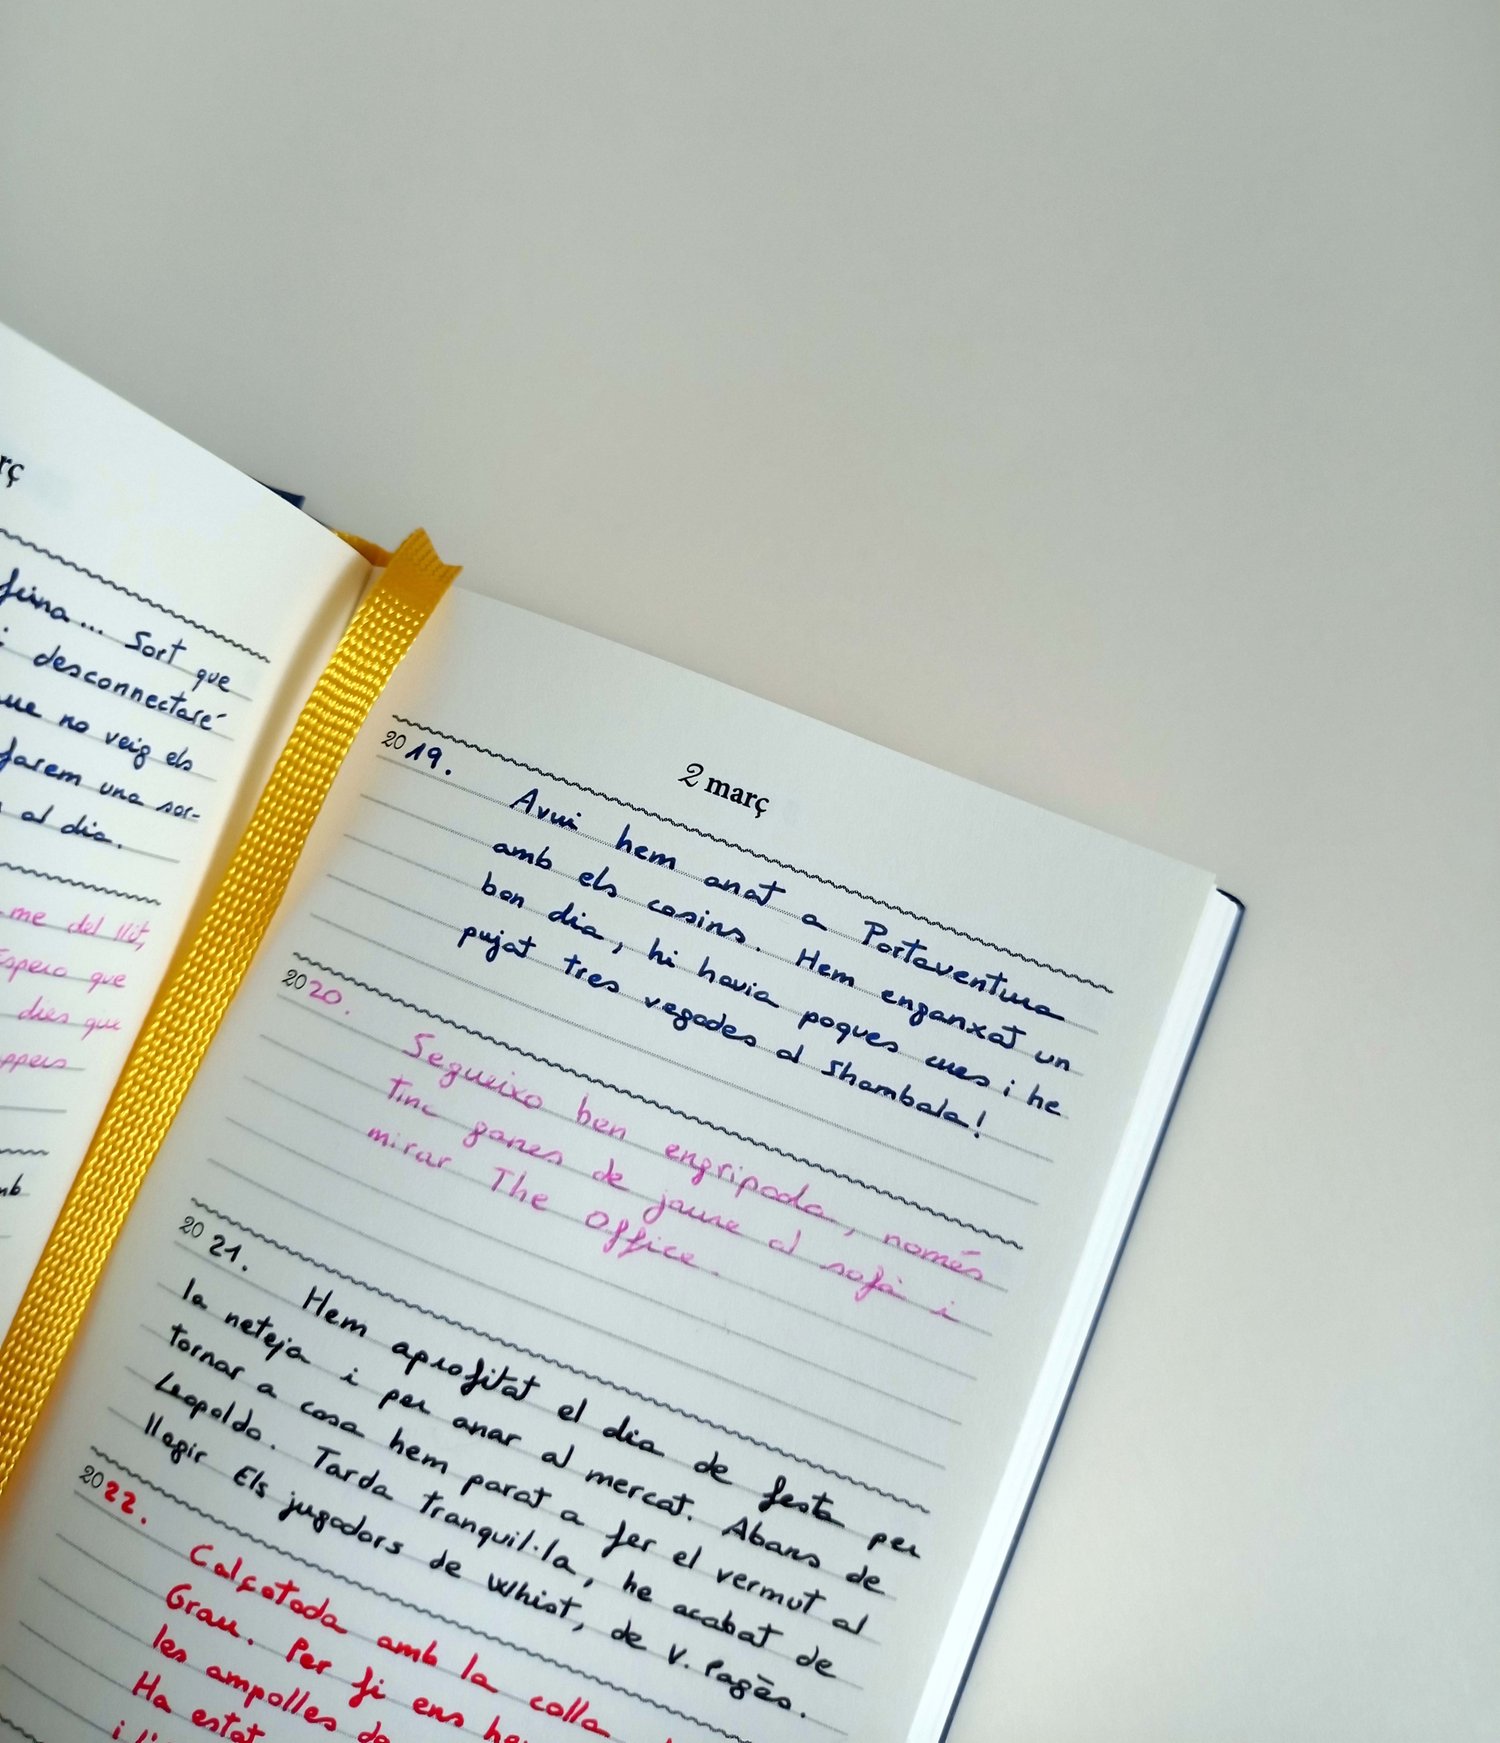 rç
feina... Sort que
i desconnectaré
que no veig els
farem una sor-
al dia.
me del llit,
Espero que
dies que
mb
2 març
2019.
Avui hem anat a Portaventura
amb els cosins. Hem enganxat un
bon dia, hi havia poques cues i he
pujat tres vegades al Shambala!
2020.
Segueixo ben engripada, només
tinc ganes de jaure al sofà i
mirar The Office.
2021.
Hem aprofitat el dia de festa per
la neteja i per anar al mercat. Abans de
tornar a casa hem parat a fer el vermut al
Leopoldo. Tarda tranquil·la, he acabat de
llegir Els jugadors de Whist, de V. Pagès.
2022.
Calçotada amb la colla
Grau. Per fi ens he
les ampolles de
Ha estat
i l'